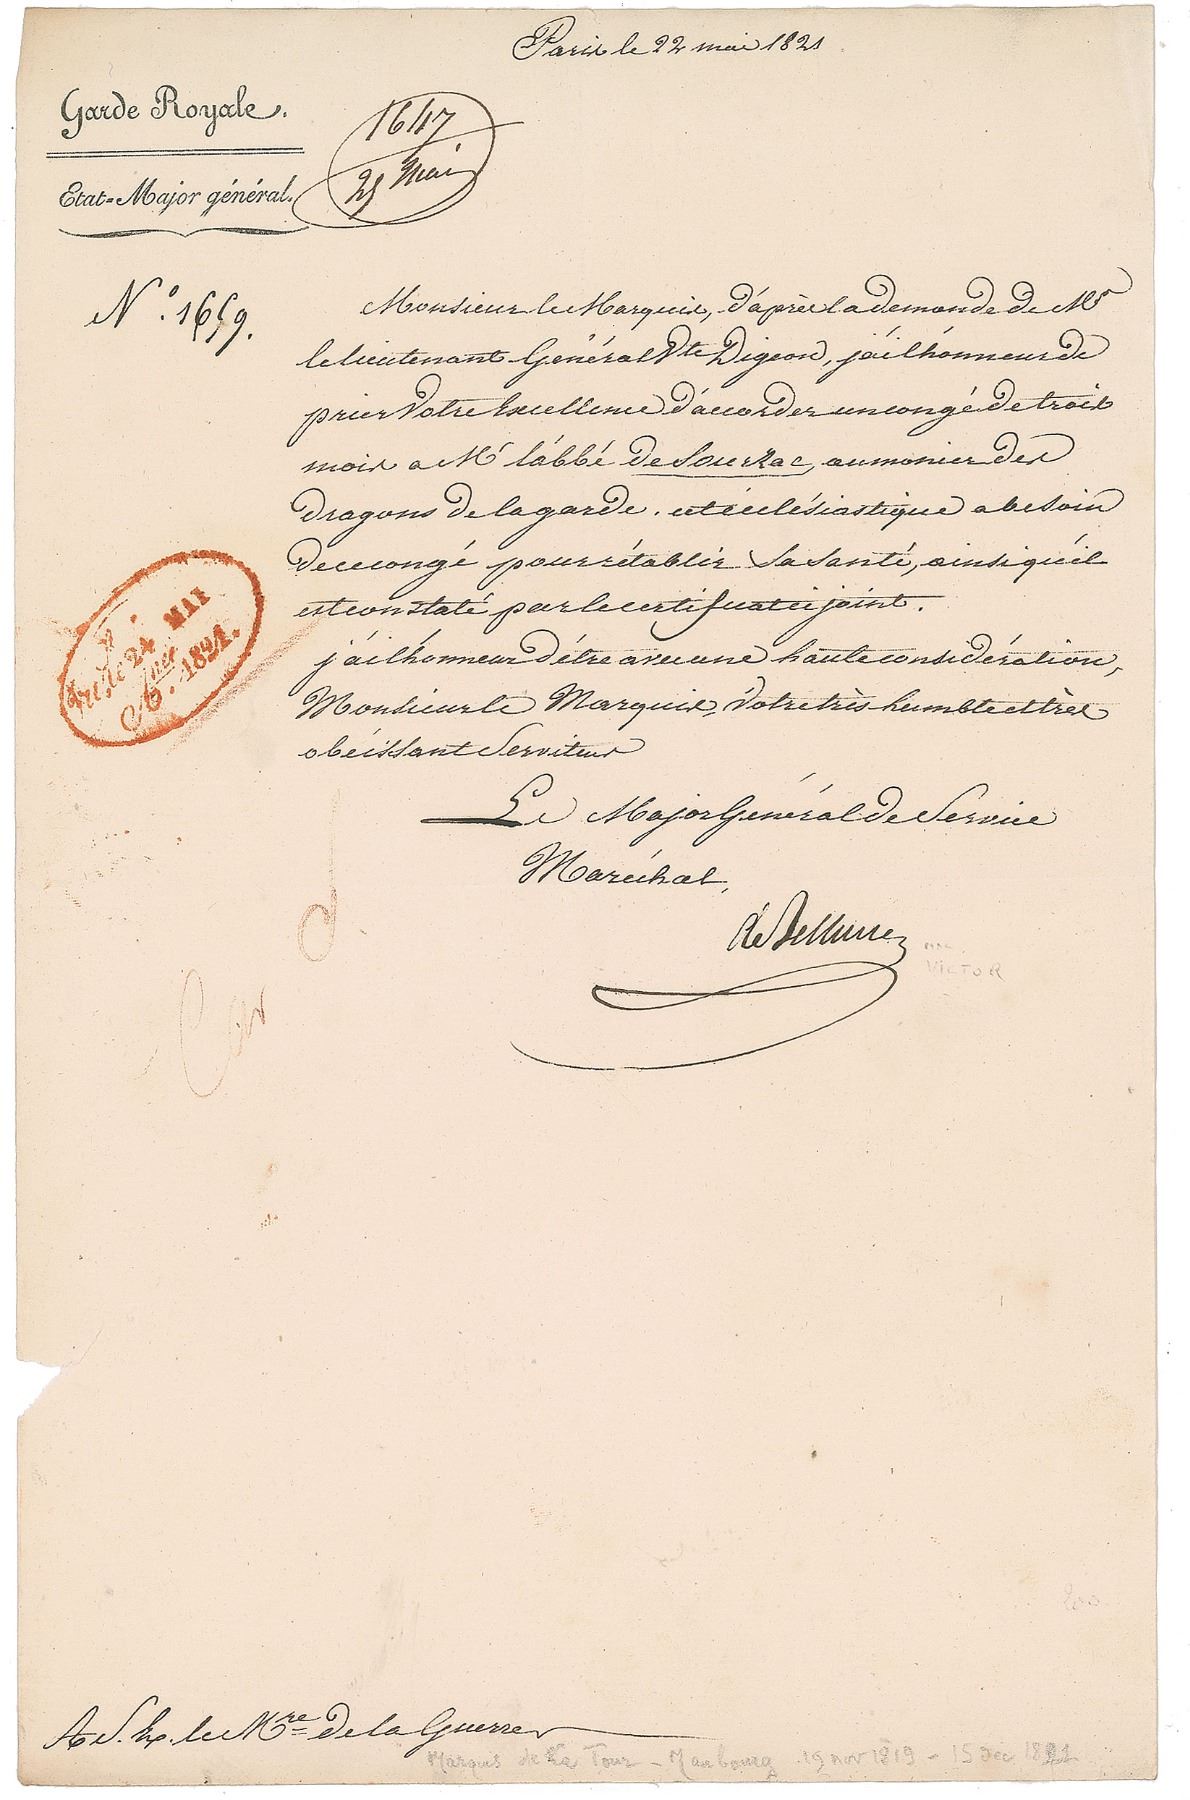 Paris le 22 mai 1821
Garde Royale.
Etat=Major général.
1647
25 Mai
N°. 1659.
Monsieur le Marquis, d'après la demande de Mr
le lieutenant Général Vte Digeon, j'ai l'honneur de
prier Votre Excellence d'accorder un congé de trois
mois a Mr l'abbé de Sourzac, aumonier des
dragons de la garde. cet écclésiastique a besoin
de ce congé pour rétablir sa santé, ainsi qu'il
est constaté par le certificat ci joint.
j'ai l'honneur d'être avec une haute considération,
Monsieur le Marquis, Votre très humble et très
obéissant Serviteur
Le Major Général de Service
Maréchal,
de Bellune
VICTOR
24 MAI
1821.
Car
A S. Ex. le Mre de la Guerre
Marquis de La Tour - Maubourg 19 nov 1819 - 15 Dec 1821